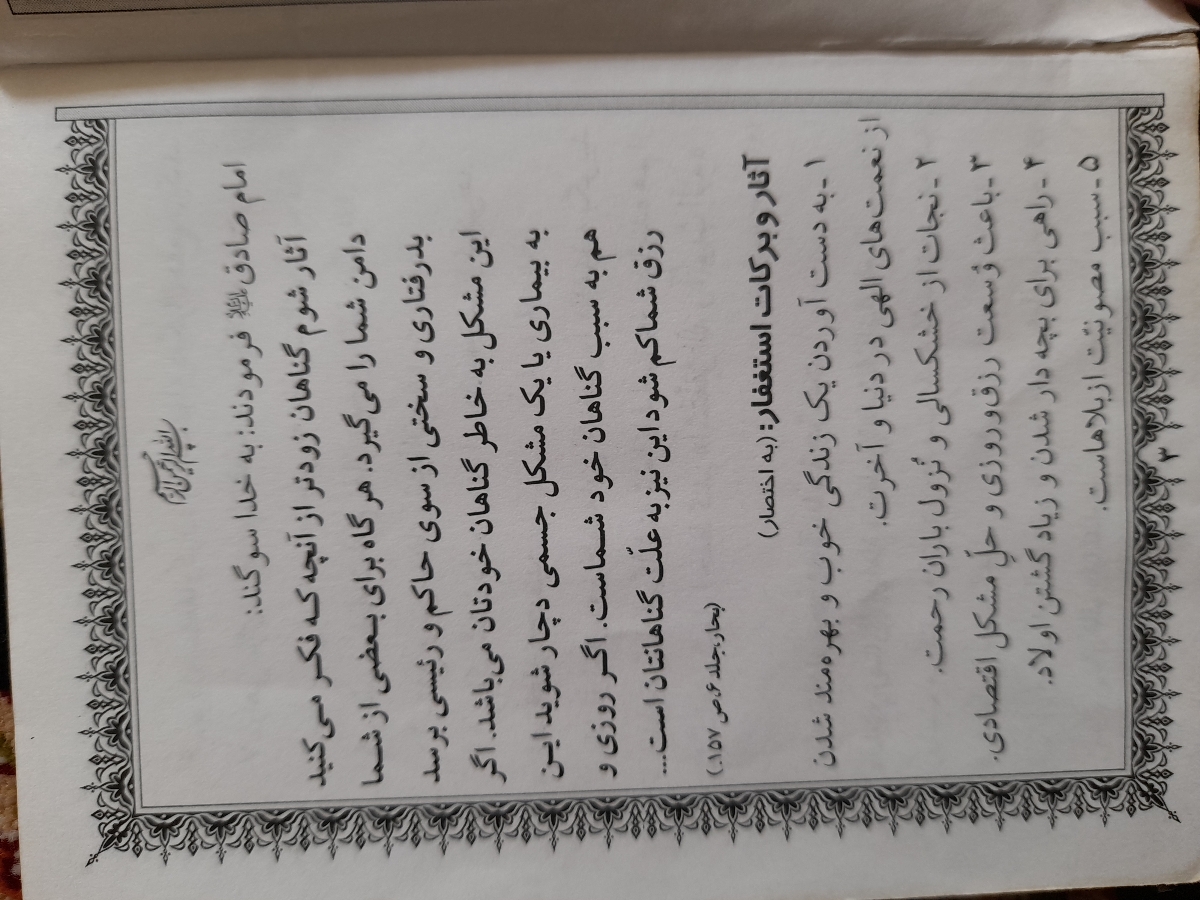 بسم الله الرحمن الرحیم
امام صادق علیه‌السلام فرمودند: به خدا سوگند:
آثار شوم گناهان زودتر از آنچه که فکر می‌کنید
دامن شما را می‌گیرد. هر گاه برای بعضی از شما
بدرفتاری و سختی از سوی حاکم و رئیسی برسد
این مشکل به خاطر گناهان خودتان می‌باشد. اگر
به بیماری یا یک مشکل جسمی دچار شوید این
هم به سبب گناهان خود شماست. اگر روزی و
رزق شما کم شود این نیز به علّت گناهانتان است...
(بحار، جلد ۶، ص ۱۵۷.)
آثار و برکات استغفار: (به اختصار)
۱ ـ به دست آوردن یک زندگی خوب و بهره‌مند شدن
از نعمت‌های الهی در دنیا و آخرت.
۲ ـ نجات از خشکسالی و نُزول باران رحمت.
۳ ـ باعث وُسعت رزق و روزی و حلّ مشکل اقتصادی.
۴ ـ راهی برای بچه دار شدن و زیاد گشتن اولاد.
۵ ـ سبب مصونیّت از بلاهاست.
۳